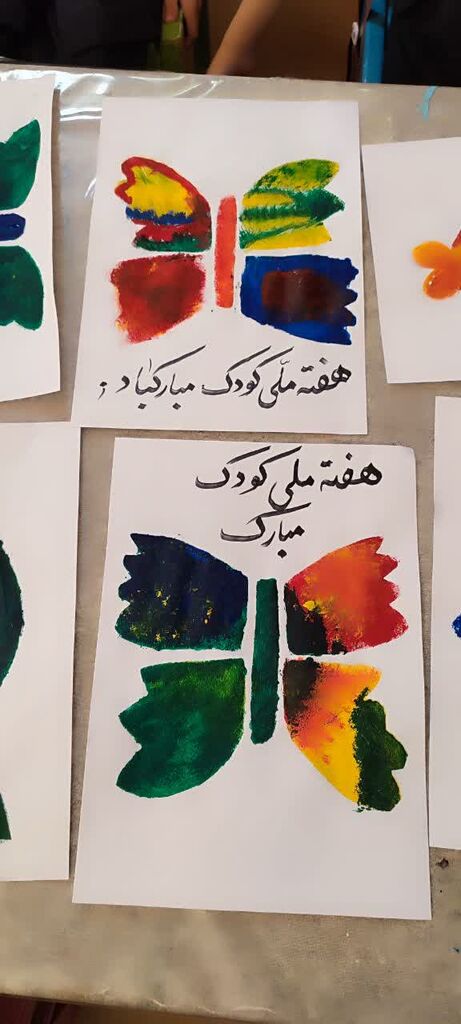 هفته ملّی کودک مبارکباد:
هفته ملی کودک
مبارک